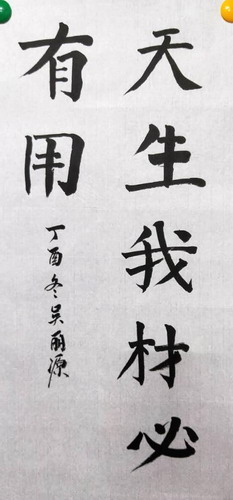 天生我材必
有用
丁酉冬吴丽源